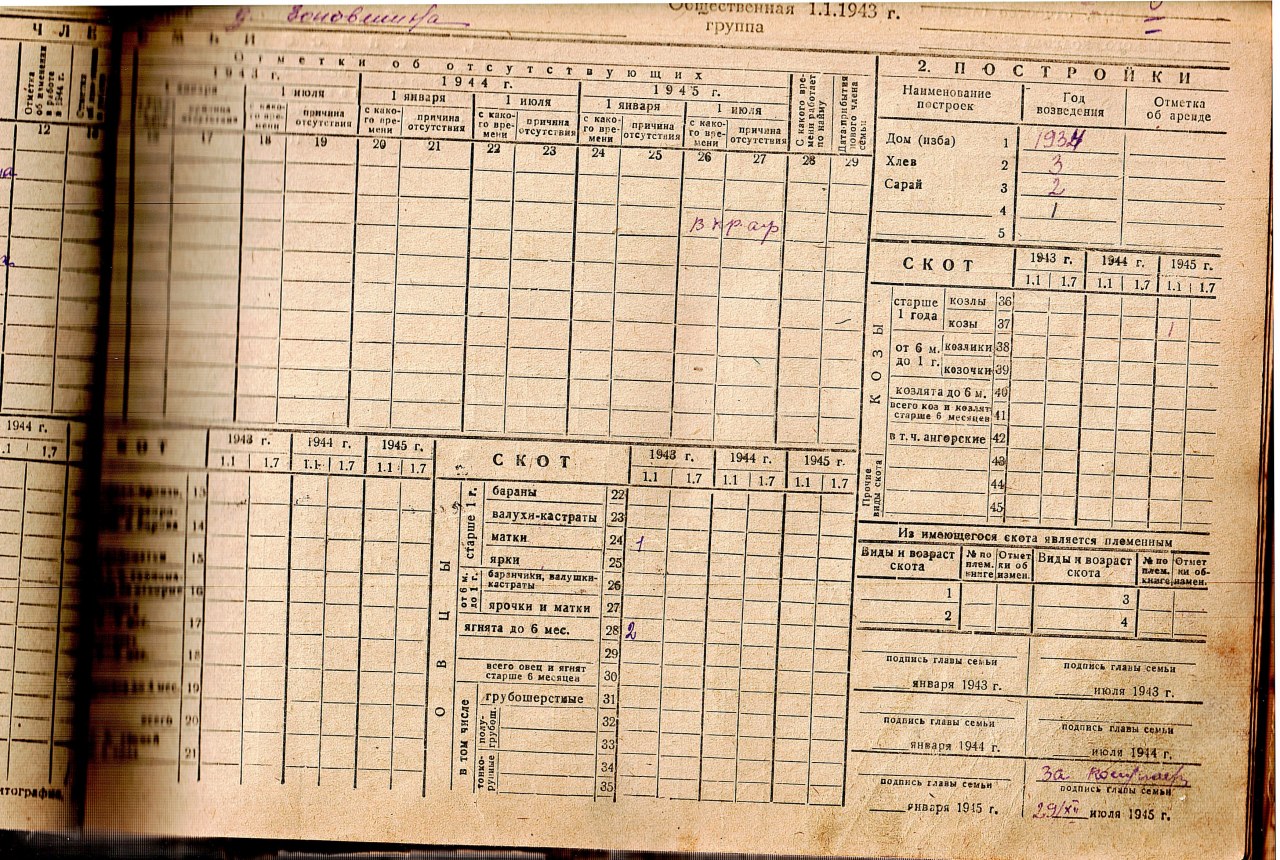 д.
Общественная 1.1.1943 г.
группа
ЧЛЕ
МЬИ
Отметки об отсутствующих
1943 г.
1944 г.
1945 г.
1 января
1 июля
1 января
1 июля
1 января
1 июля
Отметка об изменении в работе в 1944 г.
причина отсутствия
с како-го вре-мени
причина отсутствия
с како-го вре-мени
причина отсутствия
с како-го вре-мени
причина отсутствия
с како-го вре-мени
причина отсутствия
с како-го вре-мени
причина отсутствия
С какого вре-мени работает по найму
Дата прибытия нового члена семьи
12 17 18 19 20 21 22 23 24 25 26 27 28 29
2. ПОСТРОЙКИ
Наименование построек
Год возведения
Отметка об аренде
Дом (изба) 1 1934
Хлев 2 3
Сарай 3 2
4 1
5
СКОТ
1943 г. 1944 г. 1945 г.
1.1 1.7 1.1 1.7 1.1 1.7
КОЗЫ
старше 1 года
козлы 36
козы 37 1
от 6 м. до 1 г.
козлики 38
козочки 39
козлята до 6 м. 40
всего коз и козлят старше 6 месяцев 41
в т. ч. ангорские 42
Прочие виды скота
43
44
45
1944 г.
.1 1.7
КОТ
1943 г. 1944 г. 1945 г.
1.1 1.7 1.1 1.7 1.1 1.7
13
14
15
16
17
18
19
всего 20
21
СКОТ
1943 г. 1944 г. 1945 г.
1.1 1.7 1.1 1.7 1.1 1.7
ОВЦЫ
старше 1 г.
бараны 22
валухи-кастраты 23
матки 24 1
ярки 25
от 6 м. до 1 г.
баранчики, валушки-кастраты 26
ярочки и матки 27
ягнята до 6 мес. 28 2
29
всего овец и ягнят старше 6 месяцев 30
в том числе
грубошерстные 31
полу-грубош.
32
33
тонко-рунные
34
35
Из имеющегося скота является племенным
Виды и возраст скота
№ по плем. книге
Отмет ки об измен.
Виды и возраст скота
№ по плем. книге
Отмет ки об измен.
1 3
2 4
подпись главы семьи
подпись главы семьи
января 1943 г.
июля 1943 г.
подпись главы семьи
подпись главы семьи
января 1944 г.
июля 1944 г.
За
подпись главы семьи
подпись главы семьи
января 1945 г.
29/XII июля 1945 г.
итография.